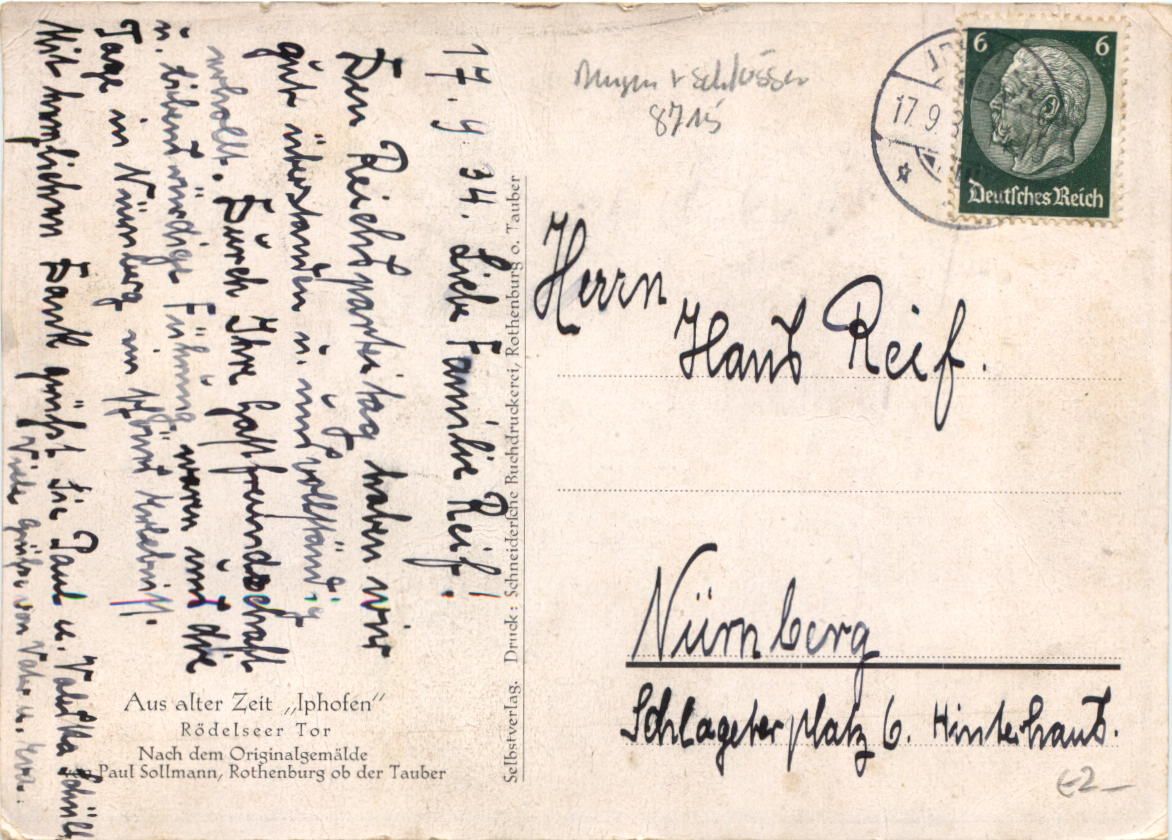 17. 9. 34. Liebe Familie Reif!
Den Reichsparteitag haben wir
gut überstanden u. uns vollständig
erholt. Durch Ihre Gastfreundschaft
u. liebenswürdige Führung waren uns die
Tage in Nürnberg ein schönes Erlebniss.
Mit herzlichem Dank grüßt Sie Paul u.
Viele Grüße von Vater u.
Aus alter Zeit „Iphofen“
Rödelseer Tor
Nach dem Originalgemälde
von Paul Sollmann, Rothenburg ob der Tauber
Selbstverlag. Druck: Schneidersche Buchdruckerei, Rothenburg o. Tauber
schlösser
8715
17.9.3
6 6
Deutsches Reich
Herrn
Hans Reif.
Nürnberg
Schlageterplatz 6. Hinterhaus.
€2–